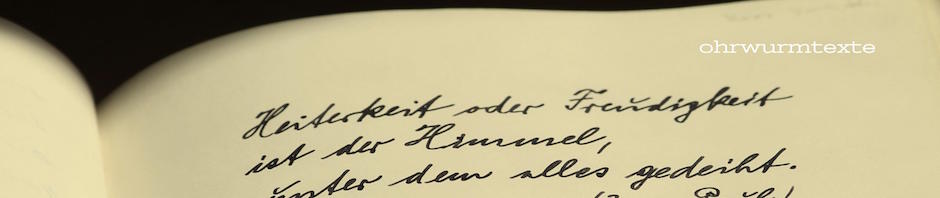 ohrwurmtexte
Heiterkeit oder Freudigkeit
ist der Himmel,
unter dem alles gedeiht.